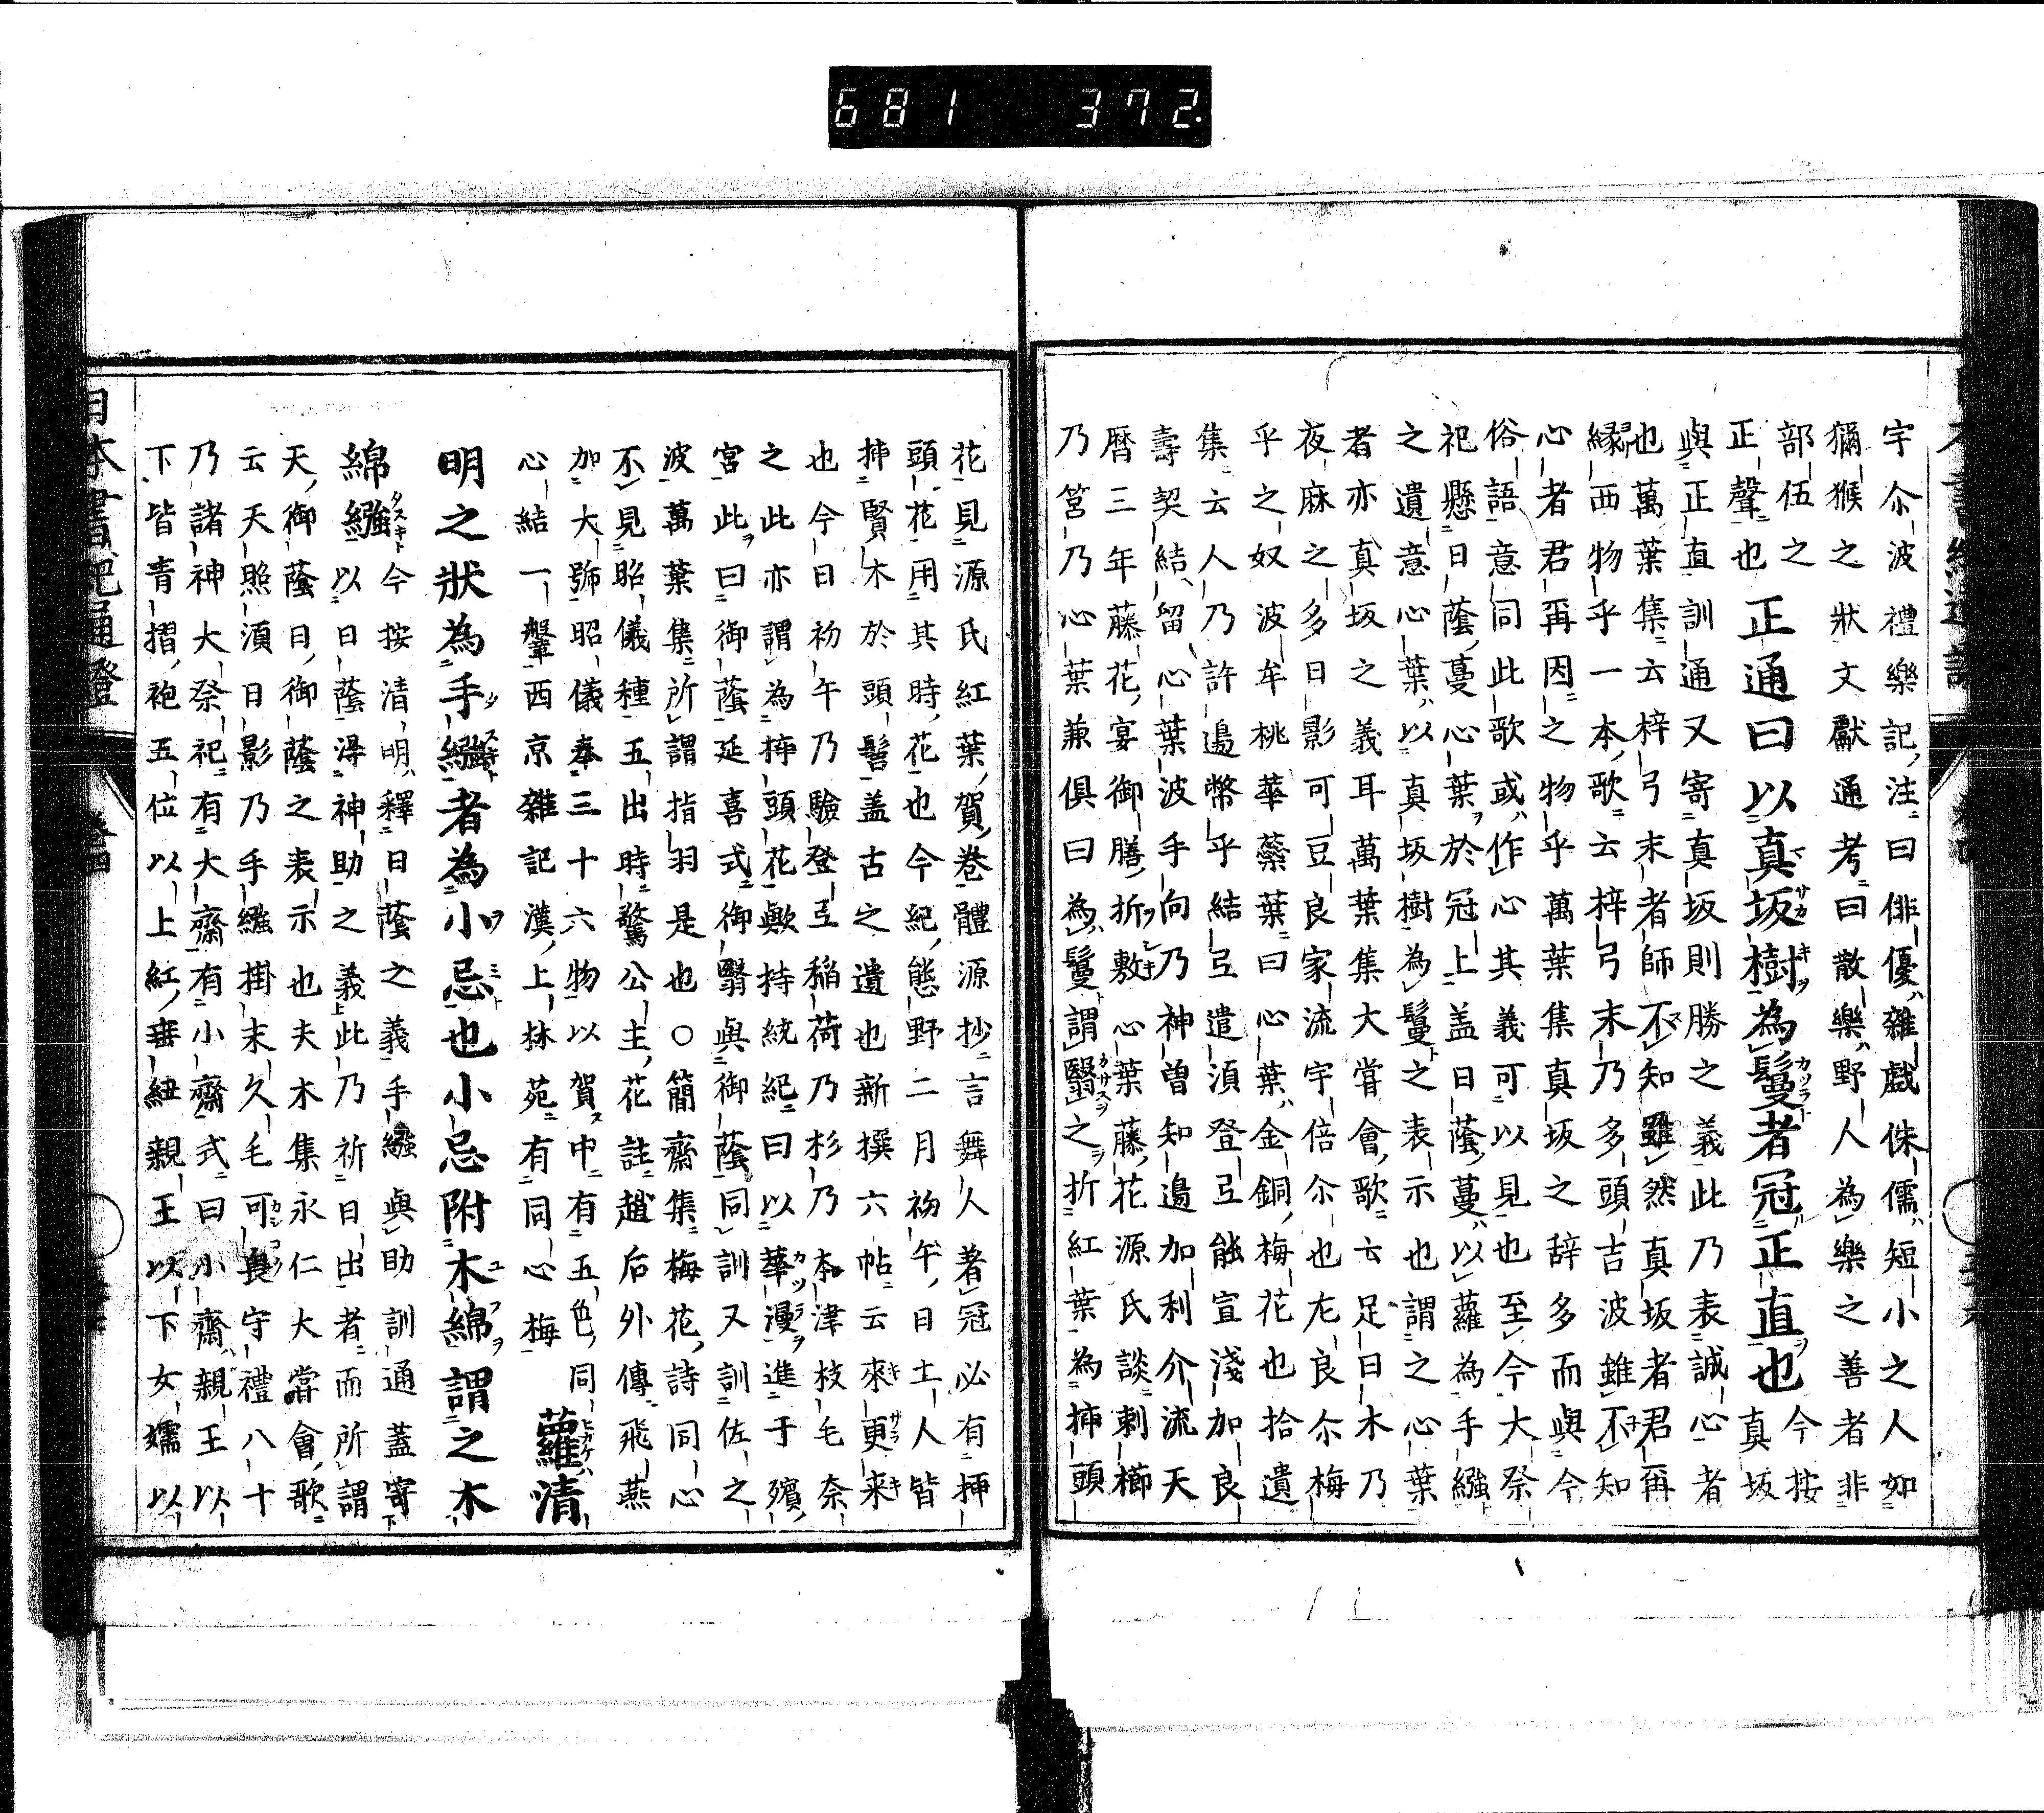 681 372.
宇尒波禮樂記注曰俳優雜戲侏儒短小之人如
獼猴之狀文獻通考曰散樂野人為樂之善者非
部伍之
正聲也
正通曰以真坂樹為鬘者冠正直也
今按
真坂
與正直訓通又寄真坂則勝之義此乃表誠心者
也萬葉集云梓弓末者師不知雖然真坂者君再
縁西物乎一本歌云梓弓末乃多頭吉波雖不知
心者君再因之物乎萬葉集真坂之辞多而與今
俗語意同此歌或作心其義可以見也至今大祭
祀懸日蔭蔓心葉於冠上蓋日蔭蔓以蘿為手繦
之遺意心葉以真坂樹為鬘之表示也謂之心葉
者亦真坂之義耳萬葉集大甞會歌云足日木乃
夜麻之多日影可豆良家流宇倍尒也尢良尒梅
乎之奴波牟桃華蘂葉曰心葉金銅梅花也拾遺
集云人乃許邉幣乎結弖遣湏登弖能宣淺加良
壽契結留心葉波手向乃神曽知邉加利介流天
暦三年藤花宴御膳折敷心葉藤花源氏談剌櫛
乃筥乃心葉兼俱曰為鬘謂翳之折紅葉為挿頭
花見源氏紅葉賀卷體源抄言舞人著冠必有挿
頭花用其時花也今紀態野二月初午日土人皆
挿賢木於頭髻盖古之遺也新撰六帖云來更来
也今日初午乃驗登弖稲荷乃杉乃本津枝毛奈
之此亦謂為挿頭花歟持統紀曰以華漫進于殯
宮此曰御蔭延喜式御翳與御蔭同訓又訓佐之
波萬葉集所謂指羽是也〇簡齋集梅花詩同心
不見昭儀種五出時驚公主花註趙后外傳飛燕
加大号昭儀奉三十六物以賀中有五色同
心結一盤西京雜記漢上林苑有同心梅
蘿清
明之狀為手繦者為小忌也小忌附木綿謂之木
綿繦
今按清明釋日蔭之義手繦與助訓通蓋寄
以日蔭得神助之義此乃祈日出者而所謂
天御蔭日御蔭之表示也夫木集永仁大甞會歌
云天照湏日影乃手繦掛末久毛可良守禮八十
乃諸神大祭祀有大齋有小齋式曰小齋親王以
下皆青摺袍五位以上紅垂紐親王以下女孺以
日本書紀通證